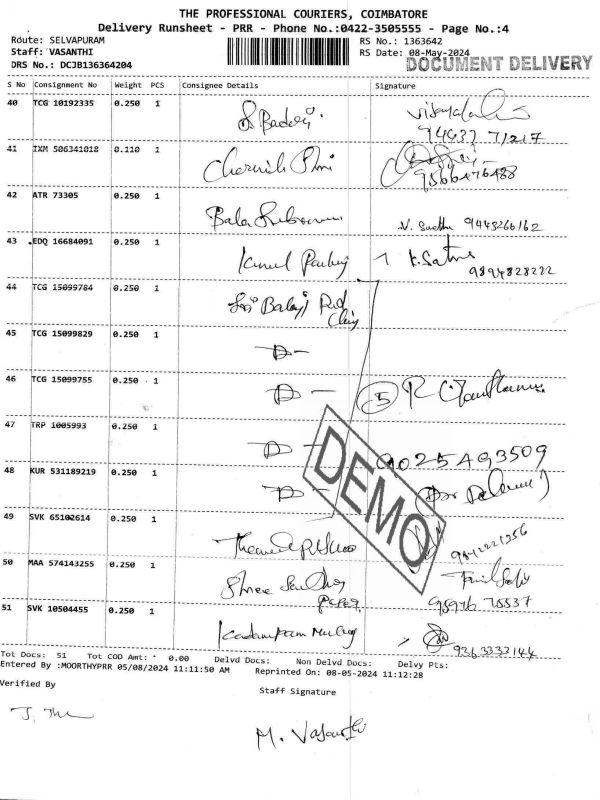 THE PROFESSIONAL COURIERS, COIMBATORE
Delivery Runsheet - PRR - Phone No.:0422-3505555 - Page No.:4
Route: SELVAPURAM
RS No.: 1363642
Staff: VASANTHI
RS Date: 08-May-2024
DRS No.: DCJB136364204
DOCUMENT DELIVERY
S No Consignment No Weight PCS Consignee Details Signature
40 TCG 10192335 0.250 1
94437 71217
41 IXM 506341018 0.110 1
9566476488
42 ATR 73305 0.250 1 V. Sudha 9443266162
43 EDQ 16684091 0.250 1 K. Sathis
9894828222
44 TCG 15099784 0.250 1 Sri Balaji Red
45 TCG 15099829 0.250 1 D-
46 TCG 15099755 0.250 1 D- 5
47 TRP 1005993 0.250 1 D- 9025493509
48 KUR 531189219 0.250 1 D-
DEMO
49 SVK 65102614 0.250 1 9842221256
50 MAA 574143255 0.250 1 Shree
95976 75537
51 SVK 10504455 0.250 1
9363333144
Tot Docs: 51 Tot COD Amt: 0.00 Delvd Docs: Non Delvd Docs: Delvy Pts:
Entered By :MOORTHYPRR 05/08/2024 11:11:50 AM Reprinted On: 08-05-2024 11:12:28
Verified By
Staff Signature
M. Vasanthi